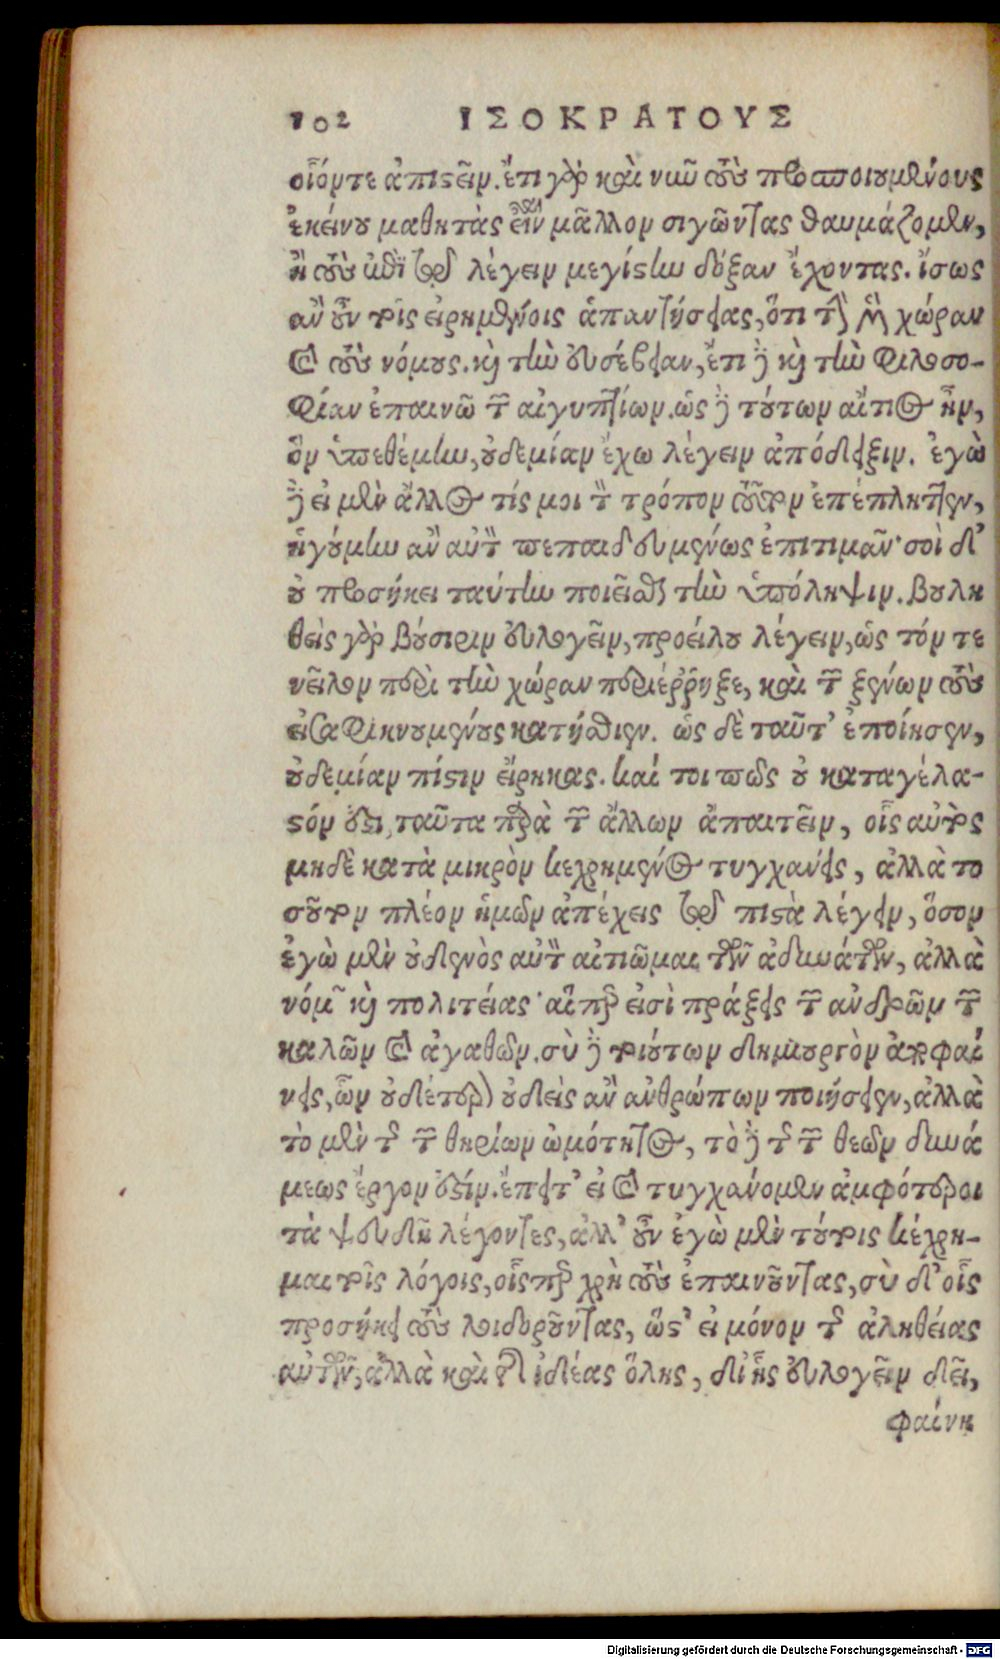 102 ΙΣΟΚΡΑΤΟΥΣ
οἷόν τε ἀπιστεῖν. ἔτι γὰρ καὶ νῦν τοὺς προσποιουμένους
ἐκείνου μαθητὰς εἶναι μᾶλλον σιγῶντας θαυμάζομεν,
ἢ τοὺς ἐπὶ τῷ λέγειν μεγίστην δόξαν ἔχοντας. ἴσως
ἂν οὖν τοῖς εἰρημένοις ἀπαντήσειας, ὅτι τὴν μὲν χώραν
καὶ τοὺς νόμους. καὶ τὴν εὐσέβειαν, ἔτι δὲ καὶ τὴν φιλοσο-
φίαν ἐπαινῶ τῶν αἰγυπτίων. ὡς δὲ τούτων αἴτιος ἦν,
ὃν ὑπεθέμην, οὐδεμίαν ἔχω λέγειν ἀπόδειξιν. ἐγὼ
δὲ εἰ μὲν ἄλλος τίς μοι τὸν τρόπον τοῦτον ἐπέπληττεν,
ἡγούμην ἂν αὐτὸν πεπαιδευμένως ἐπιτιμᾶν· σοὶ δ’
οὐ προσήκει ταύτην ποιεῖσθαι τὴν ὑπόληψιν. βουλη
θεὶς γὰρ βούσιριν εὐλογεῖν, προείλου λέγειν, ὡς τόν τε
νεῖλον περὶ τὴν χώραν περιέρρηξε, καὶ τῶν ξένων τοὺς
εἰσαφικνουμένους κατήσθιεν. ὡς δὲ ταῦτ’ ἐποίησεν,
οὐδεμίαν πίστιν εἴρηκας. καί τοι πῶς οὐ καταγέλα-
στόν ἐστι, ταῦτα παρὰ τῶν ἄλλων ἀπαιτεῖν, οἷς αὐτὸς
μηδὲ κατὰ μικρὸν κεχρημένος τυγχάνεις, ἀλλὰ το
σοῦτον πλέον ἡμῶν ἀπέχεις τοῦ πιστὰ λέγειν, ὅσον
ἐγὼ μὲν οὐδενὸς αὐτὸν αἰτιῶμαι τῶν ἀδυνάτων, ἀλλὰ
νόμων καὶ πολιτείας· αἵπερ εἰσὶ πράξεις τῶν ἀνδρῶν τῶν
καλῶν καὶ ἀγαθῶν. σὺ δὲ τοιούτων δημιουργὸν ἀποφαί
νεις, ὧν οὐδέτερα οὐδεὶς ἂν ἀνθρώπων ποιήσειεν, ἀλλὰ
τὸ μὲν τῆς τῶν θηρίων ὠμότητος, τὸ δὲ τῆς τῶν θεῶν δυνά
μεως ἔργον ἐστίν. ἔπειτ’ εἰ καὶ τυγχάνομεν ἀμφότεροι
τὰ ψευδῆ λέγοντες, ἀλλ’ οὖν ἐγὼ μὲν τούτοις κέχρη-
μαι τοῖς λόγοις, οἷσπερ χρὴ τοὺς ἐπαινοῦντας, σὺ δ’ οἷς
προσήκει τοὺς λοιδοροῦντας, ὥστ’ εἰ μόνον τῆς ἀληθείας
αὐτῶν, ἀλλὰ καὶ τῆς ἰδέας ὅλης, δι’ ἧς εὐλογεῖν δεῖ,
φαίνη
Digitalisierung gefördert durch die Deutsche Forschungsgemeinschaft - DFG